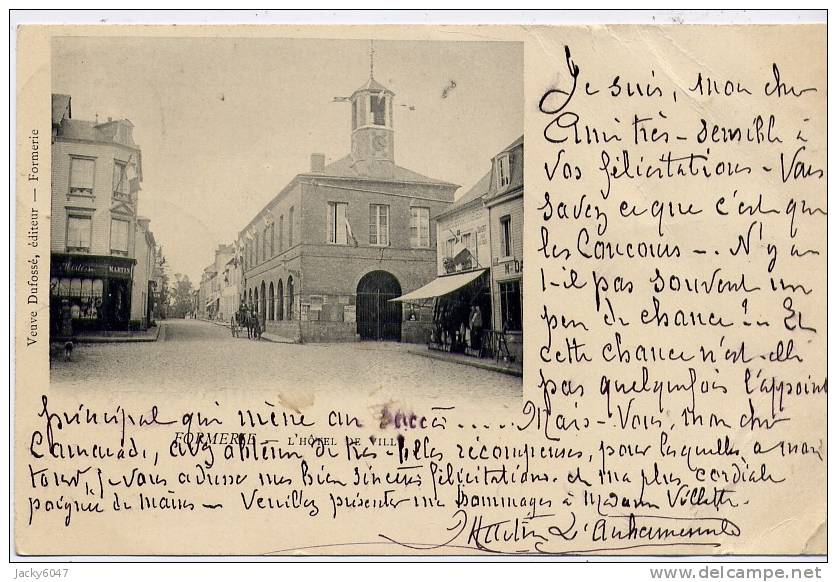 Je suis, mon cher
Ami très-sensible à
vos félicitations - Vous
savez ce que c'est que
les Concours -. N'y a
t-il pas souvent un
peu de chance?.. Et
cette chance n'est-elle
pas quelquefois l'appoint
principal qui mène au succès.... Mais - Vous, mon cher
Camarade, avez obtenu de très-belles récompenses, pour lesquelles, à mon
tour, je vous adresse mes bien sincères félicitations. et ma plus cordiale
poignée de mains - Veuillez présenter mes hommages à Madame Villette.
FORMERIE - L'HÔTEL DE VILLE
Veuve Dufossé, éditeur — Formerie
Modes MARTIN
Jacky6047
delcampe.net